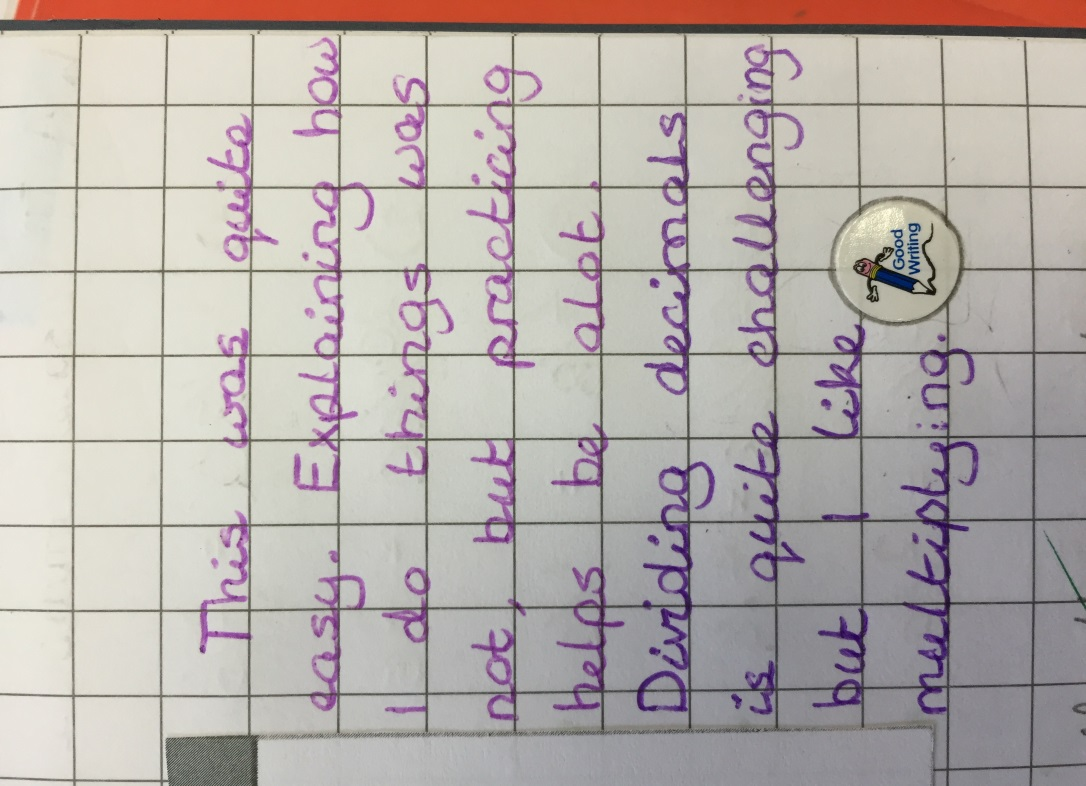 This was quite
easy. Explaining how
I do things was
not, but practicing
helps be alot.
Dividing decimals
is quite challenging
but I like
multiplying.
Good
Writing